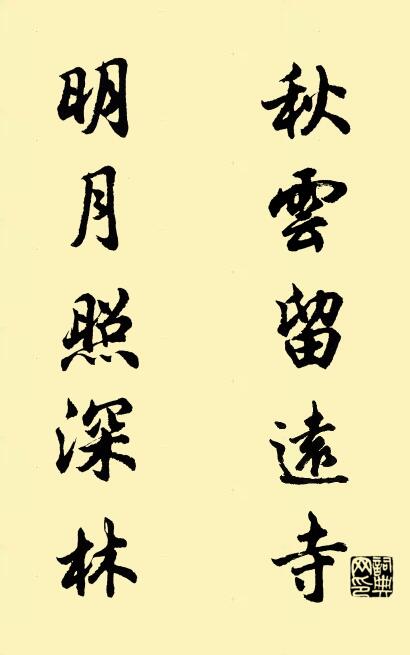 秋雲留遠寺
明月照深林
詞典網印